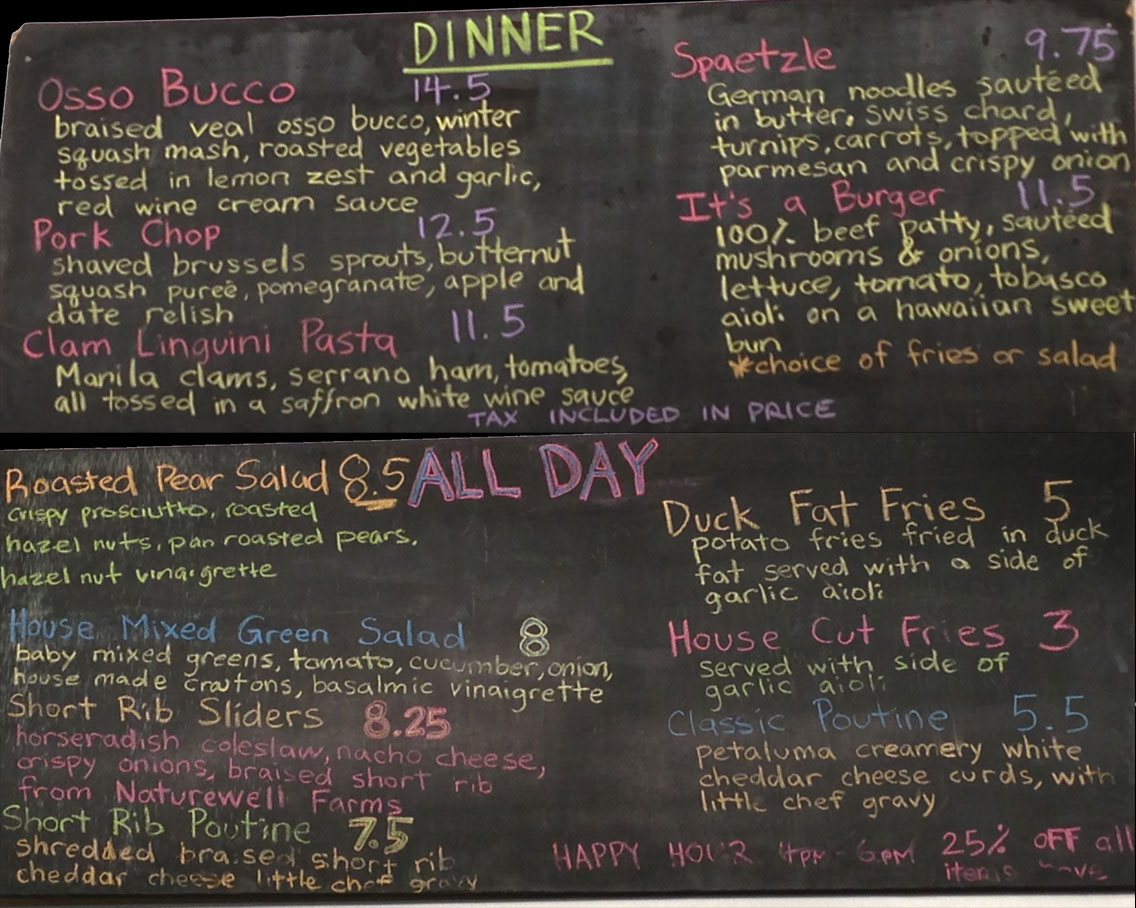 DINNER
Osso Bucco 14.5
braised veal osso bucco, winter
squash mash, roasted vegetables
tossed in lemon zest and garlic,
red wine cream sauce
Pork Chop 12.5
shaved brussels sprouts, butternut
squash pureé, pomegranate, apple and
date relish
Clam Linguini Pasta 11.5
Manila clams, serrano ham, tomatoes,
all tossed in a saffron white wine sauce
Spaetzle 9.75
German noodles sautéed
in butter, swiss chard,
turnips, carrots, topped with
parmesan and crispy onion
It's a Burger 11.5
100% beef patty, sautéed
mushrooms & onions,
lettuce, tomato, tobasco
aioli on a hawaiian sweet
bun
*choice of fries or salad
TAX INCLUDED IN PRICE
ALL DAY
Roasted Pear Salad 8.5
crispy prosciutto, roasted
hazel nuts, pan roasted pears.
hazel nut vinaigrette
House Mixed Green Salad 8
baby mixed greens, tomato, cucumber, onion,
house made croutons, basalmic vinaigrette
Short Rib Sliders 8.25
horseradish coleslaw, nacho cheese,
crispy onions, braised short rib
from Naturewell Farms
Short Rib Poutine 7.5
shredded braised short rib
cheddar cheese little chef gravy
Duck Fat Fries 5
potato fries fried in duck
fat served with a side of
garlic aioli
House Cut Fries 3
served with side of
garlic aioli
Classic Poutine 5.5
petaluma creamery white
cheddar cheese curds, with
little chef gravy
HAPPY HOUR 4PM - 6PM 25% OFF all
items